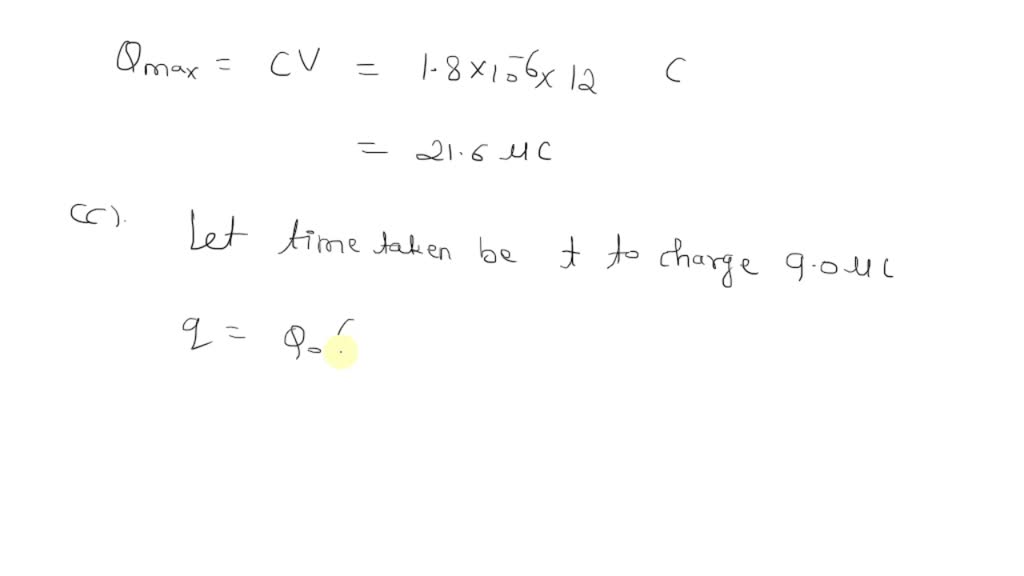 Qmax = CV = 1.8×10⁻⁶× 12 C
= 21.6 μC
(c). Let time taken be t to charge 9.0 μC
q = Q₀ (